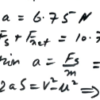 a = 6.75 N
Fs + Fnet = 10.
in a = Fs/m =
2as = v² - u² ⇒